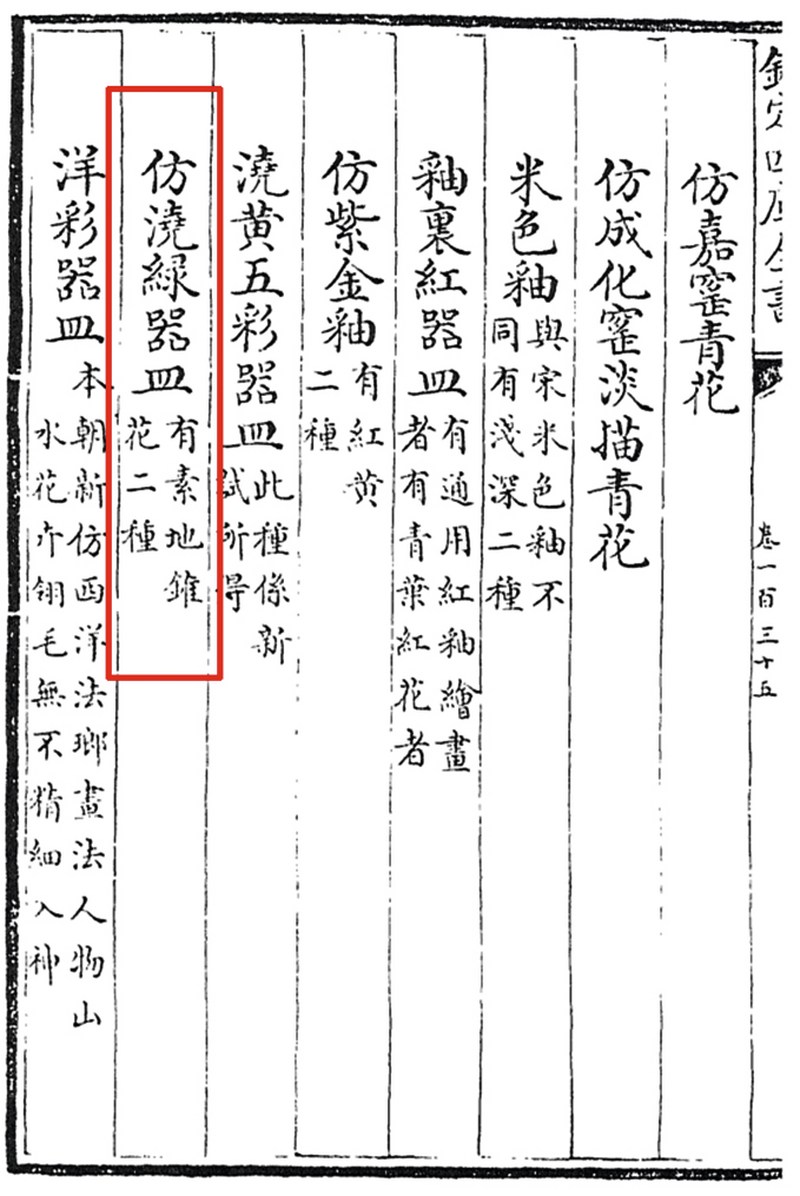 欽定四庫全書
卷一百三十五
仿嘉窰青花
仿成化窰淡描青花
米色釉
與宋米色釉不
同有淺深二種
釉裏紅器皿
有通用紅釉繪畫
者有青葉紅花者
仿紫金釉
有紅黄
二種
澆黄五彩器皿
此種係新
試所得
仿澆緑器皿
有素地錐
花二種
洋彩器皿
本朝新仿西洋法瑯畫法人物山
水花卉翎毛無不精細入神